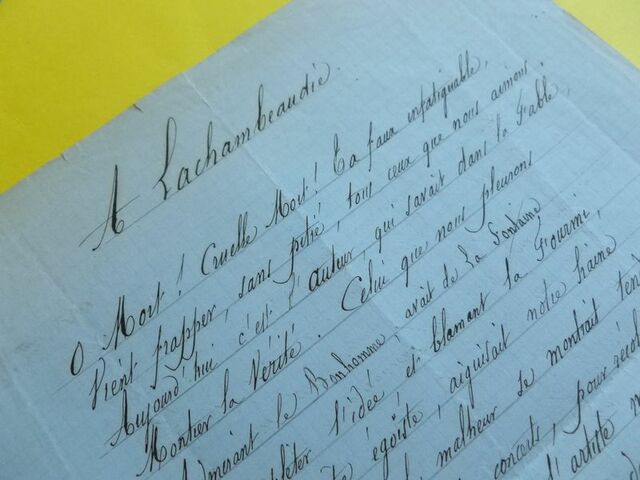 A Lachambeaudie.
O Mort ! Cruelle Mort ! Ta faux infatigable,
Vient frapper, sans pitié, tous ceux que nous aimons.
Aujourd'hui c'est l'auteur, qui savait dans la Fable,
Montrer la Vérité. Celui que nous pleurons
Admirant le Bonhomme, avait de La Fontaine
pléter l'idée, et blamant la Fourmi,
égoïste, aiguisait notre haine
malheur se montrait
concerts, pour
d'artiste